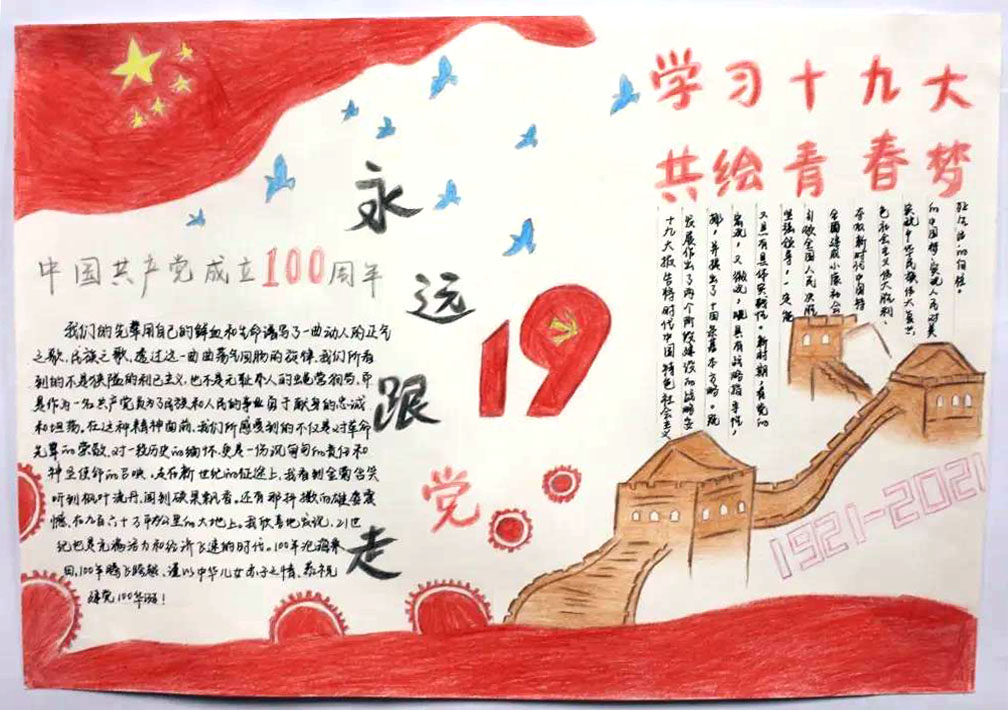 学习十九大
共绘青春梦
永远跟党走
19
中国共产党成立100周年
我们的先辈用自己的鲜血和生命谱写了一曲动人的正气
之歌,民族之歌,透过这一曲曲荡气回肠的旋律,我们所看
到的不是狭隘的利己主义,也不是无耻本人的蝇营狗苟,而
是作为一名共产党员为了民族和人民的事业勇于献身的忠诚
和坦荡。在这种精神面前,我们所感受到的不仅是对革命
先辈的崇敬,对一段历史的缅怀,更是一份沉甸甸的责任和
神圣使命的召唤。走在新世纪的征途上,我看到金菊含笑
听到枫叶流丹,闻到硕果飘香,还有那抖擞的雄姿震
憾,在九百六十万平方公里的大地上。我欣喜地宣说,21世
纪也是充满活力和经济飞速的时代。100年沧海桑
田,100年腾飞跨越,谨以中华儿女赤子之情,恭祝
建党100华诞!
十九大报告将新时代中国特色社会主义
发展作出了两个阶段建设的战略安
排,并提出了十四条基本方略。既
宏观,又微观,既具有战略指导性,
又具有具体实践性。新时期,有党的
坚强领导,一定能
引领全国人民决胜
全面建成小康社会
夺取新时代中国特
色社会主义伟大胜利、
实现中华民族伟大复兴
的中国梦、实现人民对美
好生活的向往。
1921-2021